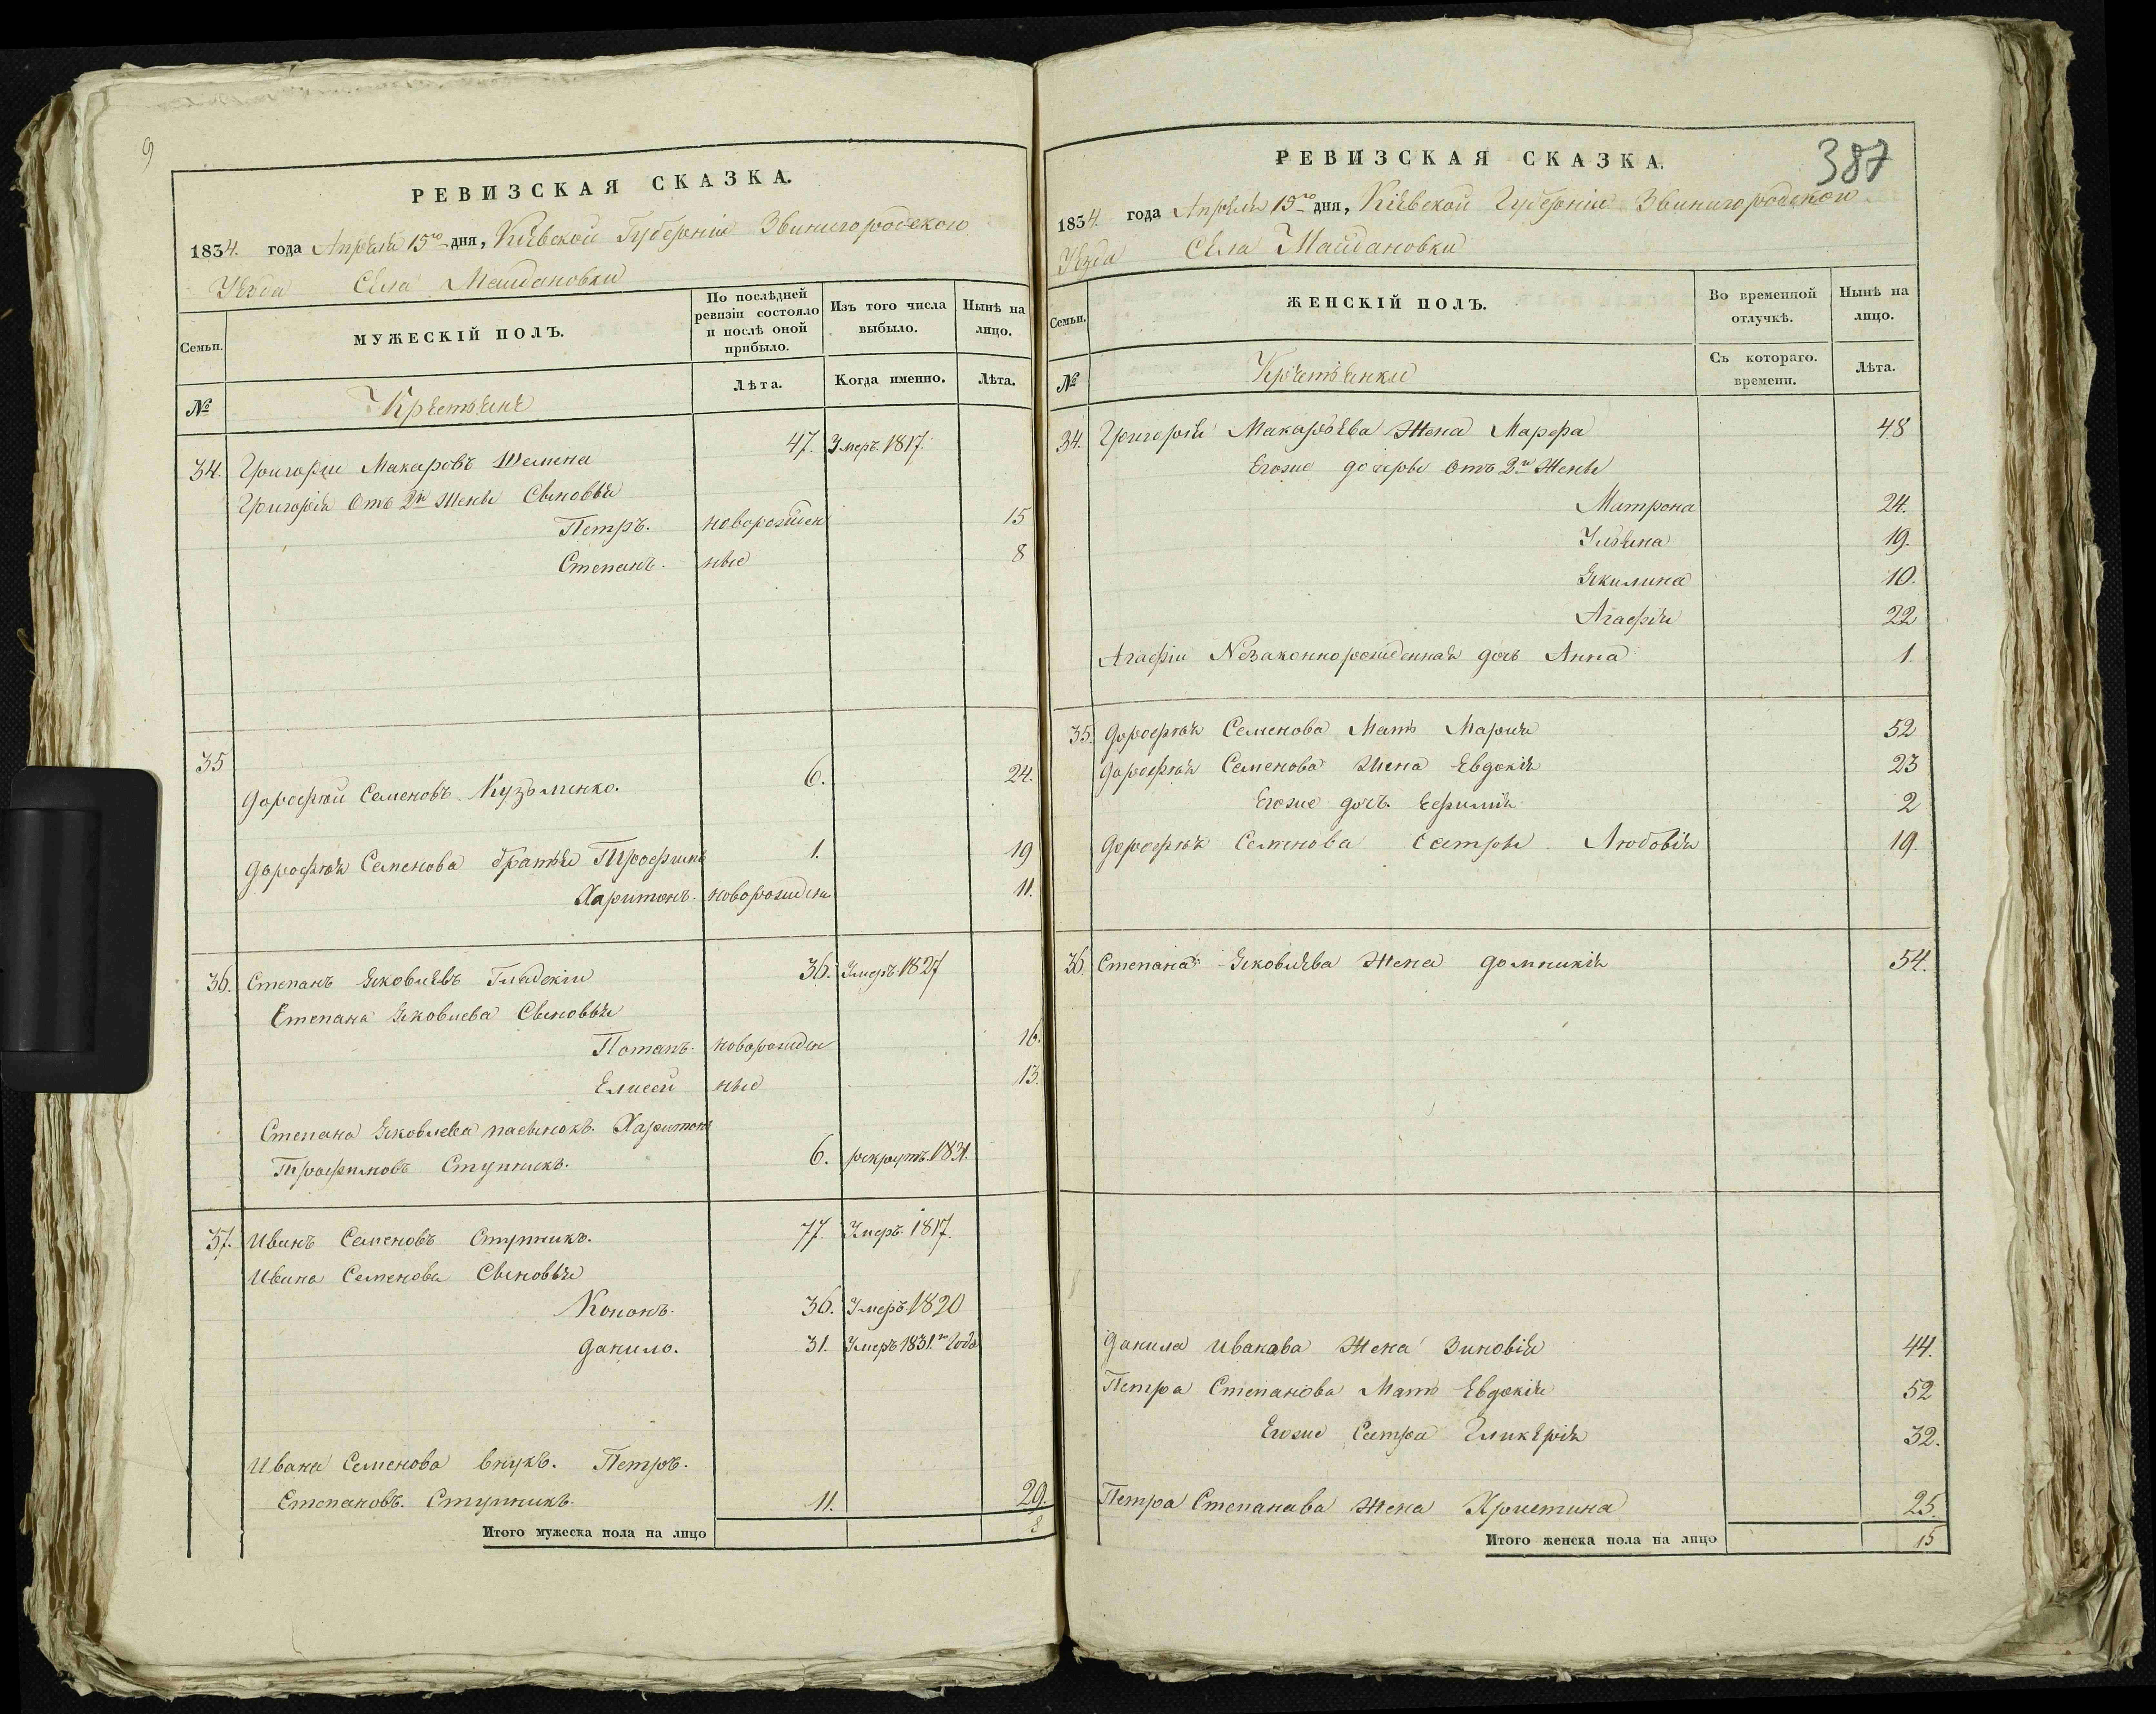 9
РЕВИЗСКАЯ СКАЗКА.
1834. года Апреля 15го дня, Киевской Губернии Звинигородского
Уезда Села Майдановки
Семьи.
МУЖЕСКІЙ ПОЛЪ.
По послѣдней ревизіи состояло и послѣ оной прибыло.
Изъ того числа выбыло.
Нынѣ на лицо.
№
Крестьяне
Лѣта.
Когда именно.
Лѣта.
34. Григорий Макаровъ 47. Умеръ 1817.
Григорія Отъ 2й жены Сыновья
Петръ. новорожден 15
Степанъ. ные 8
35
Дорофтей Семеновъ Кузьменко. 6. 24.
Дорофтея Семенова братья Трофимъ 1. 19
Харитонъ. новорожден 11.
36. Степанъ Яковлевъ Гладкій 36. Умеръ 1827
Степана Яковлева Сыновья
Потапъ. новорожден 16.
Елисей ные 13.
Степана Яковлева пасынокъ. Харитонъ
Трофимовъ Ступникъ. 6. рекрутъ. 1831.
37. Иванъ Семеновъ Ступникъ. 77. Умеръ 1817.
Ивана Семенова Сыновья
Кононъ. 36. Умеръ 1820
Данило. 31. Умеръ 1831го Года
Ивана Семенова внукъ. Петръ.
Степановъ. Ступникъ. 11. 29.
Итого мужеска пола на лицо 8
387
РЕВИЗСКАЯ СКАЗКА.
1834. года Апреля 15го дня, Кіевской Губерніи Звинигородского
Уезда Села Майдановки
Семьи.
ЖЕНСКІЙ ПОЛЪ.
Во временной отлучкѣ.
Нынѣ на лицо.
№
Крестьянки
Съ котораго. времени.
Лѣта.
34. Григорія Макарьева Жена Марфа 48
Егоже дочери Отъ 2й Жены
Матрона 24.
Ульяна 19.
Якилина 10.
Агафія 22
Агафіи Незаконнорожденная дочь Анна 1.
35. Дорофтея Семенова Мать Марія 52
Дорофтея Семенова Жена Евдокія 23
Егоже дочь. Ефимія 2
Дорофтея Семенова Сестры Любовія 19.
36 Степана Яковлева Жена Домникія 54.
Данила Иванова Жена Зиновія 44.
Петра Степанова Мать Евдокія 52
Егоже Сестра Гликерія 32.
Петра Степанова Жена Христина 25.
Итого женска пола на лицо 15